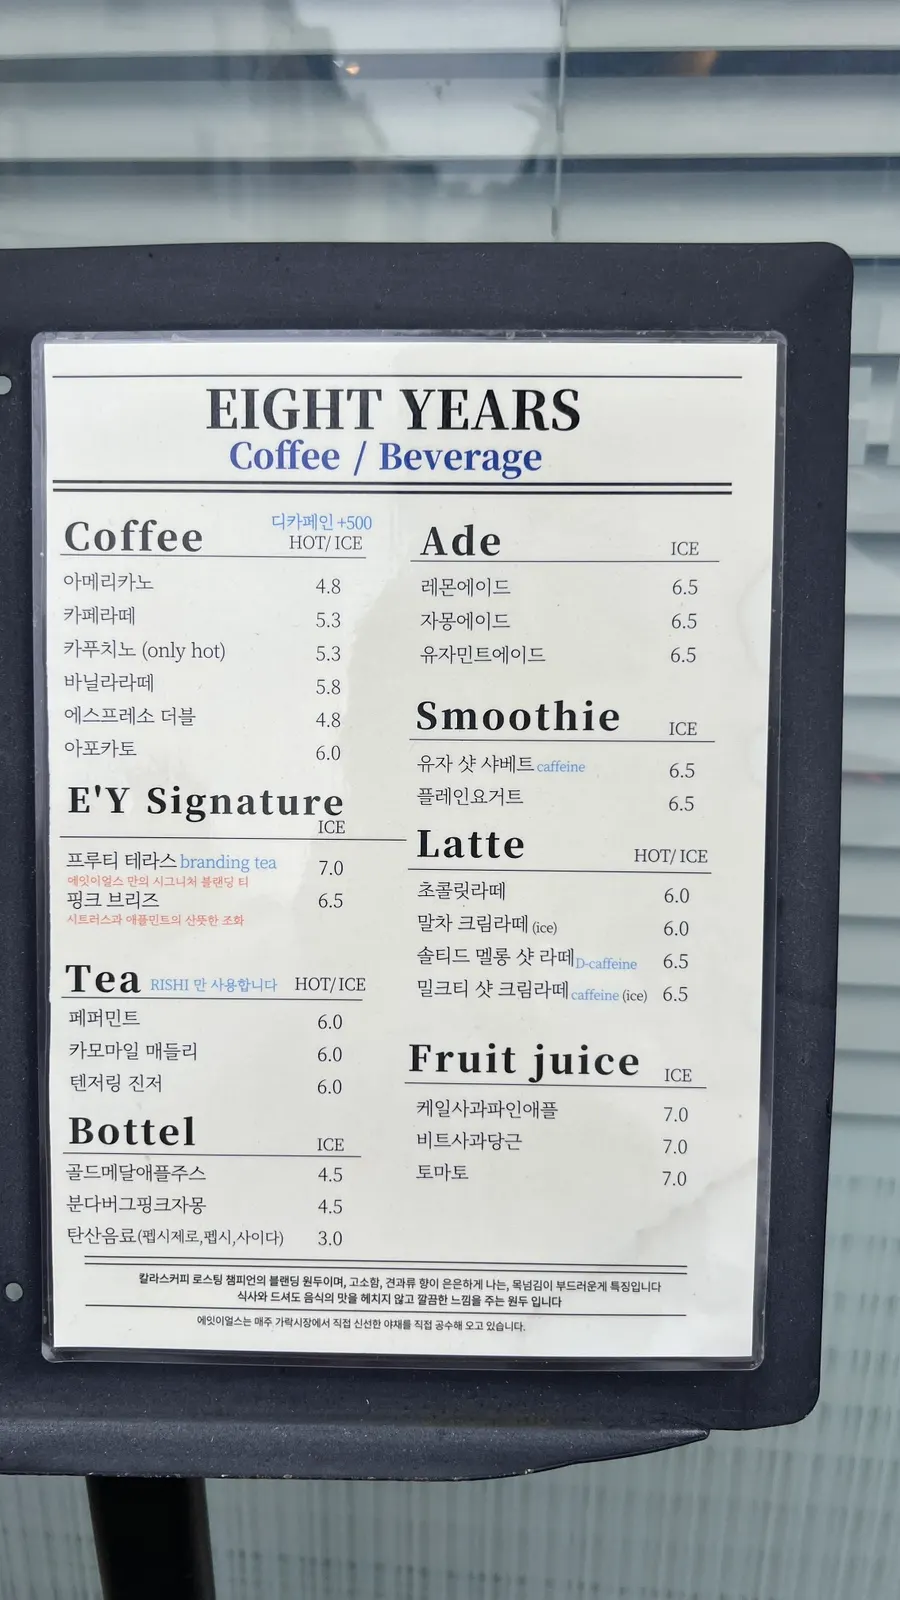 EIGHT YEARS
Coffee / Beverage
Coffee
디카페인 +500
HOT/ ICE
아메리카노 4.8
카페라떼 5.3
카푸치노 (only hot) 5.3
바닐라라떼 5.8
에스프레소 더블 4.8
아포카토 6.0
E'Y Signature
ICE
프루티 테라스 branding tea 7.0
에잇이얼스 만의 시그니처 블랜딩 티
핑크 브리즈 6.5
시트러스과 애플민트의 산뜻한 조화
Tea RISHI 만 사용합니다 HOT/ ICE
페퍼민트 6.0
카모마일 매들리 6.0
텐저링 진저 6.0
Bottel ICE
골드메달애플주스 4.5
분다버그핑크자몽 4.5
탄산음료(펩시제로,펩시,사이다) 3.0
Ade ICE
레몬에이드 6.5
자몽에이드 6.5
유자민트에이드 6.5
Smoothie ICE
유자 샷 샤베트 caffeine 6.5
플레인요거트 6.5
Latte HOT/ ICE
초콜릿라떼 6.0
말차 크림라떼 (ice) 6.0
솔티드 멜롱 샷 라떼 D-caffeine 6.5
밀크티 샷 크림라떼 caffeine (ice) 6.5
Fruit juice ICE
케일사과파인애플 7.0
비트사과당근 7.0
토마토 7.0
칼라스커피 로스팅 챔피언의 블랜딩 원두이며, 고소함, 견과류 향이 은은하게 나는, 목넘김이 부드러운게 특징입니다
식사와 드셔도 음식의 맛을 헤치지 않고 깔끔한 느낌을 주는 원두 입니다
에잇이얼스는 매주 가락시장에서 직접 신선한 야채를 직접 공수해 오고 있습니다.